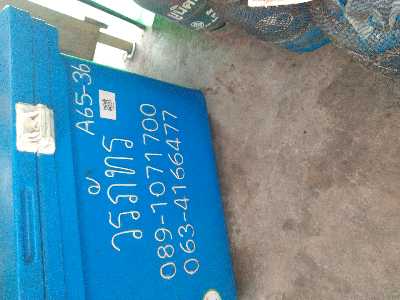 A65-36
วรภัทร
089-1071700
063-4166477